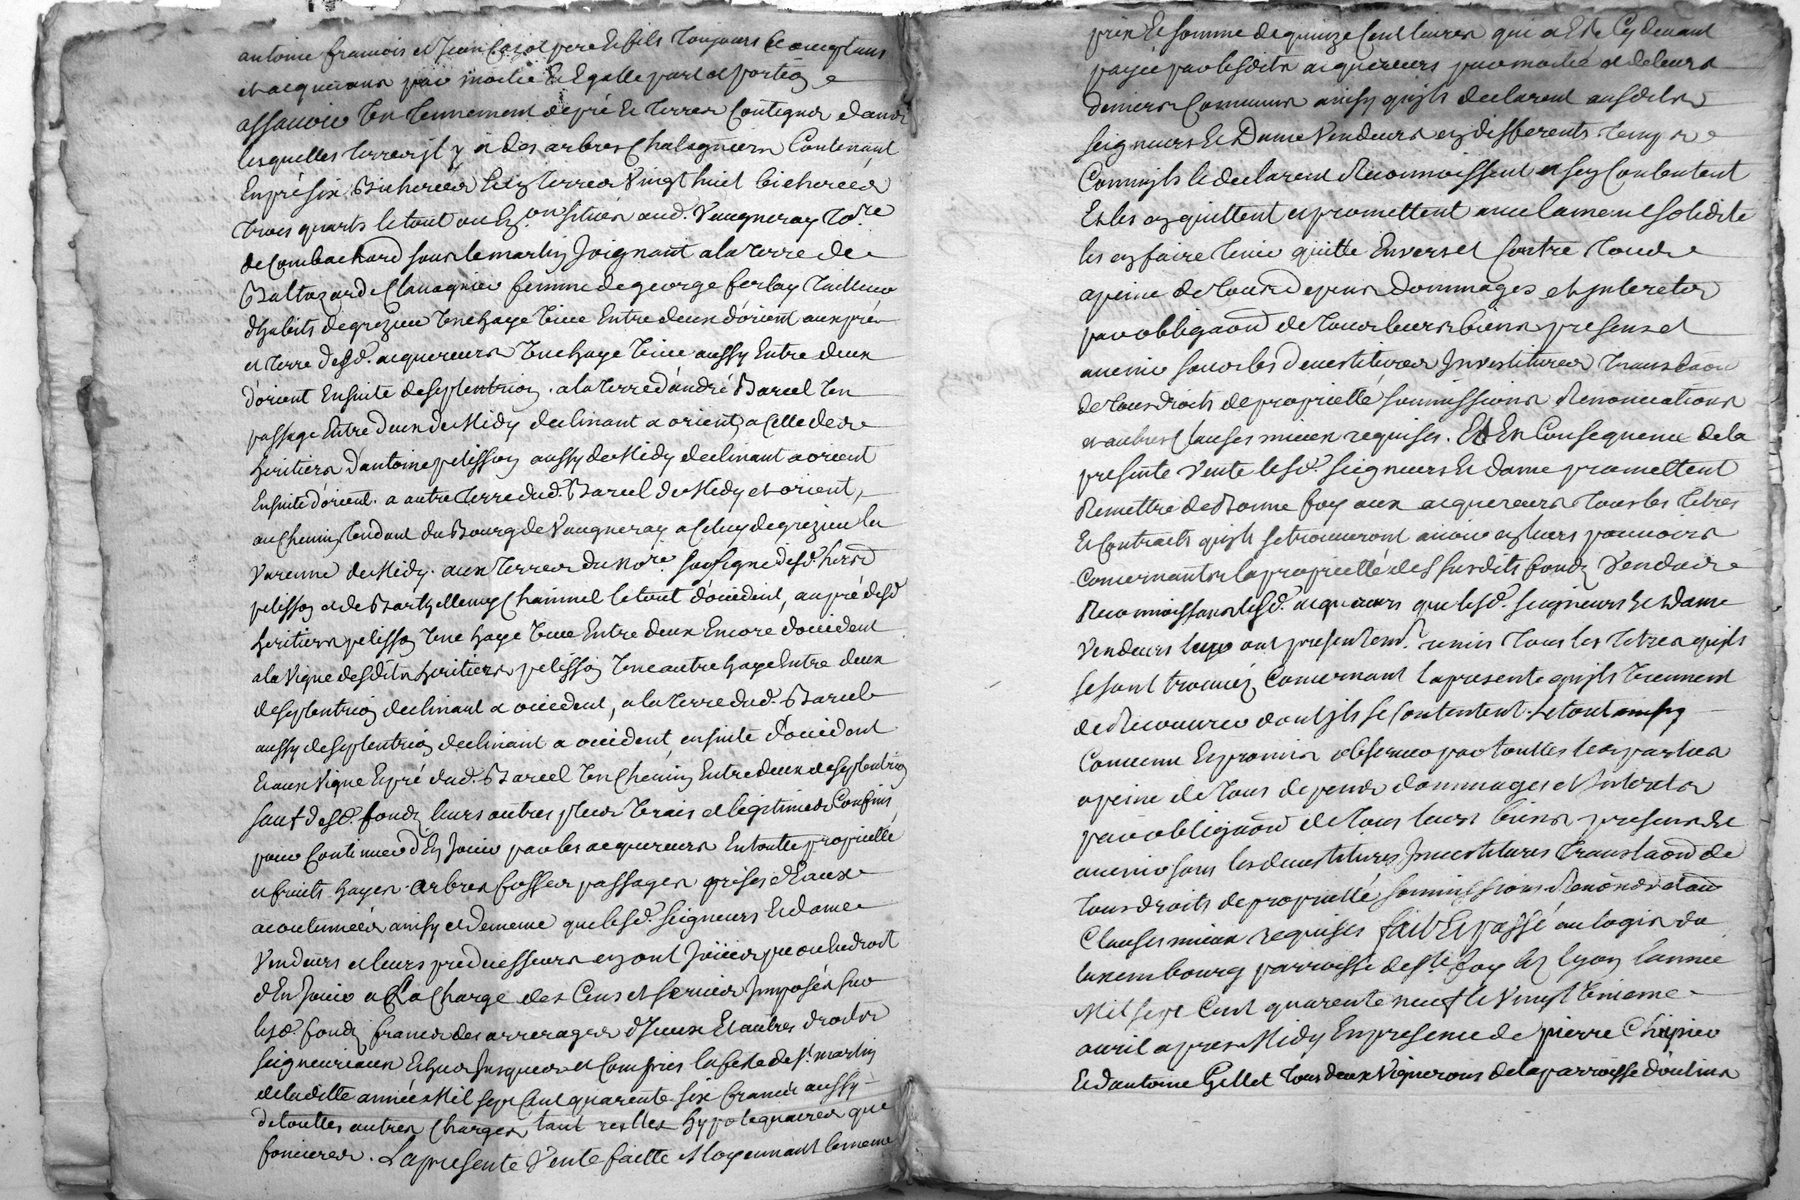 antoine francois et Jean Cazot pere et fils toujours acceptans
et acquerans par moitié et Egalle part et portion
assavoir Un tennement de pré et terres Contigues dans
lesquelles terres jl y a des arbres Chataigniers Contenant
En pré six Bicherées et en terres Vingt huit bicherées
trois quarts le tout ou En.on situés aud. Vaugneray To.re
de Combachard sous le martin Joignant a la terre de
Baltazarde Clavagnier femme de george ferlay tailleur
d'habits de grezieu Une haye Vive Entre deux d'orient aux prés
et terre desd. acquereurs Une haye Vive aussy Entre deux
d'orient Ensuite de septentrion. a la terre d'andré Barcel Un
passage Entre deux de Midy declinant a orient a Celle des
heritiers d'antoine pelisson aussy de Midy declinant a orient
Ensuite d'orient. a autre terre dud. Barcel de Midy et orient,
au Chemin tendant du Bourg de Vaugneray a Celuy de grezieu la
Varenne de Midy. aux terres du No.re soussigné desd. hers
pelisson et de Barthellemy Chaimel le tout d'occident, au pré desd
heritiers pelisson Une haye Vive Entre deux Encore d'occident
a la Vigne desdits heritiers pelisson Une autre haye Entre deux
de septentrion declinant a occident, a la terre dud. Barcel
aussy de septentrion declinant a occident ensuite d'occident
Et aux Vigne Et pré dud. Barcel Un Chemin Entre deux de septentrion
sauf desd. fonds leurs autres plus Vrais et legitimes Confins
pour Continuer d'En Jouir par les acquereurs En toutte propriette
et fruits hayes arbres fosses passages prises d'Eaux
acoutumées ainsy et de meme que lesd. seigneurs Et dame
Vendeurs et leurs predecesseurs en ont Joüi ou pu ou eu droit
d'En Jouir a la Charge des Cens et servis Jmposés sur
lesd. fonds francs des arrerages d'Jceux Et autres droits
seigneuriaux Echus Jusques et Compris la feste de st. martin
de laditte année Mil sept Cent quarente six francs aussy
de touttes autres Charges tant reelles hypotequaires que
foncieres. La presente Vente faitte Moyennant le meme
prix Et somme de quinze Cent livres qui a Eté Cy devant
payée par lesdits acquereurs par moitié et de leurs
deniers Communs ainsy qu'jls declarent auxdits
seigneurs Et Dame Vendeurs en differents temps
Comm'jls le declarent Reconnoissent et s'en Contentent
Et les en quittent et promettent avec la meme solidité
les en faire tenir quitte Envers et Contre tous
a peine de tous depens Dommages et jnterets
par obligaõn de tous leurs biens presens et
avenir sous les devestitures Jnvestitures translaõn
de tous droits de proprietté soumissions Renonciations
et autres Clauses mieux requises. Et En Consequence de la
presente Vente lesd. seigneurs Et dame promettent
Remettre de Bonne foy aux acquereurs tous les titres
Et Contracts qu'jls se trouveront avoir en leurs pouvoirs
Concernants la proprietté des susdits fonds Vendus
Reconnoissans lesd. acquereurs que lesd. seigneurs Et dame
Vendeurs leur ont presentem.t remis tous les titres qu'jls
se sont trouvés Concernant la presente qu'jls Viennent
de Recouvrer dont jls se Contentent. Le tout ainsy
Convenu Et promis observer par touttes les parties
a peine de tous depens dommages et jnterets
par obligaõn de tous leurs biens presens Et
avenir sous les devestitures, Jnvestitures translaõn de
tous droits de proprietté, soumissions Renõnciataõn
Clauses mieux requises fait Et passé au logis du
luxembourg parroisse de ste. foy les lyon l'annee
Mil sept Cent quarente neuf le Vingt Unieme
avril apres Midy En presence de pierre Chipier
Et d'antoine Gillet tous deux Vignerons de la parroisse d'oulins